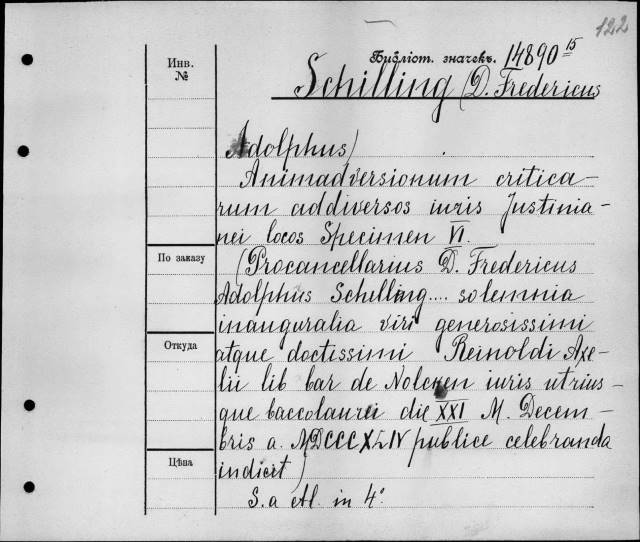 122
Инв. №
Библіот. значекъ. 14890 15
Schilling (D. Fredericus
Adolphus)
Animadversionum critica-
rum ad diversos iuris Justinia-
nei locos Specimen VI.
По заказу
(Procancellarius D. Fredericus
Adolphus Schilling.... solemnia
inauguralia viri generosissimi
Откуда
atque doctissimi Reinoldi Axe-
lii lib bar de Nolcken iuris utrius-
que baccolaurei die XXI M. Decem-
bris a. MDCCCXLIV publice celebranda
Цѣна
indicit)
S. a et l. in 4°